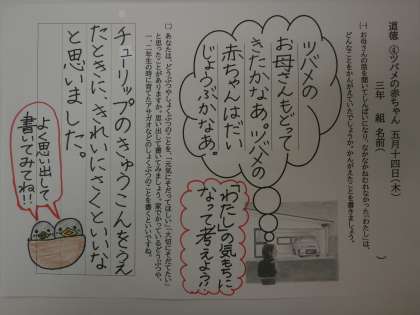 道徳 ④ツバメの赤ちゃん 五月十四日(木)
三年 組 名前( )
(一) お母さんの話を聞いてしんぱいになり、なかなかねむれなかった「わたし」は、
どんなことをかんがえていたでしょうか。かんがえたことを書きましょう。
ツバメの
お母さんもどって
きたかなあ。ツバメの
赤ちゃんはだい
じょうぶかなあ。
「わたし」の気もちに
なって考えよう!!
(二) あなたは、どうぶつやしょくぶつのことを、「元気にそだってほしい」「大切にそだてたい」
と思ったことがありますか。思い出して書いてみましょう。家でかっているどうぶつや、
一、二年生の時に育てたアサガオなどのしょくぶつのことを書くといいですね。
チューリップのきゅうこんをうえ
たときに、きれいにさくといいな
と思いました。
よく思い出して
書いてみてね!!